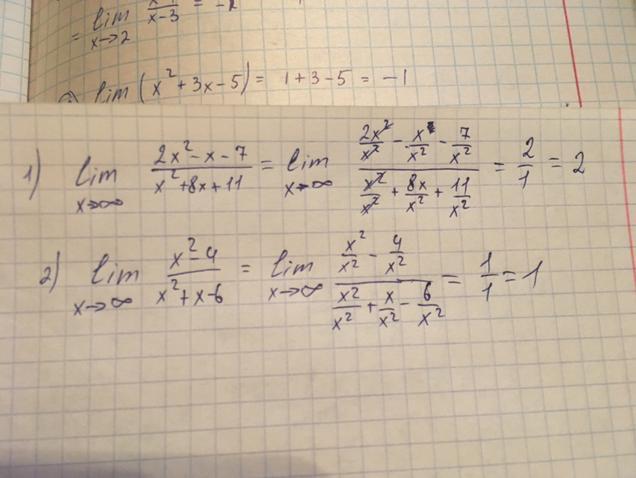 = lim x→2 x-3 = -2
lim (x² + 3x - 5) = 1 + 3 - 5 = -1
1) lim x→∞ (2x² - x - 7)/(x² + 8x + 11) = lim x→∞ (2x²/x² - x/x² - 7/x²)/(x²/x² + 8x/x² + 11/x²) = 2/1 = 2
2) lim x→∞ (x² - 4)/(x² + x - 6) = lim x→∞ (x²/x² - 4/x²)/(x²/x² + x/x² - 6/x²) = 1/1 = 1